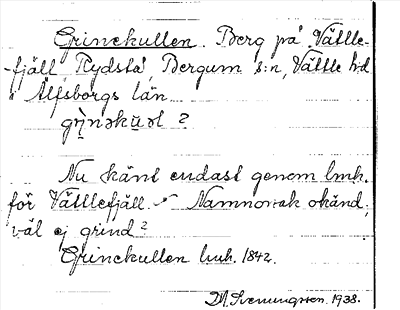 Grinekullen. Berg på Vättle-
-fjäll, Rydstå, Bergum s:n, Vättle hd
Älfsborgs län.
gri̖nəku̱əl ?
Nu känt endast genom lmk.
för Vättlefjäll. Namnorsak okänd;
väl ej grind?
Grinekullen lmk. 1842.
1938.